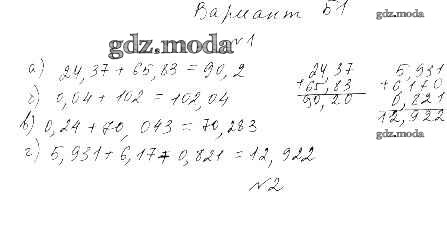 Вариант Б1
gdz.moda
gdz.moda
№1
а) 24,37 + 65,83 = 90,2
б) 0,04 + 102 = 102,04
в) 0,24 + 70, 043 = 70,283
г) 5,931 + 6,17 + 0,821 = 12, 922
24,37
+65,83
90,20
5,931
+ 6,170
0,821
12,922
gdz.moda
№2